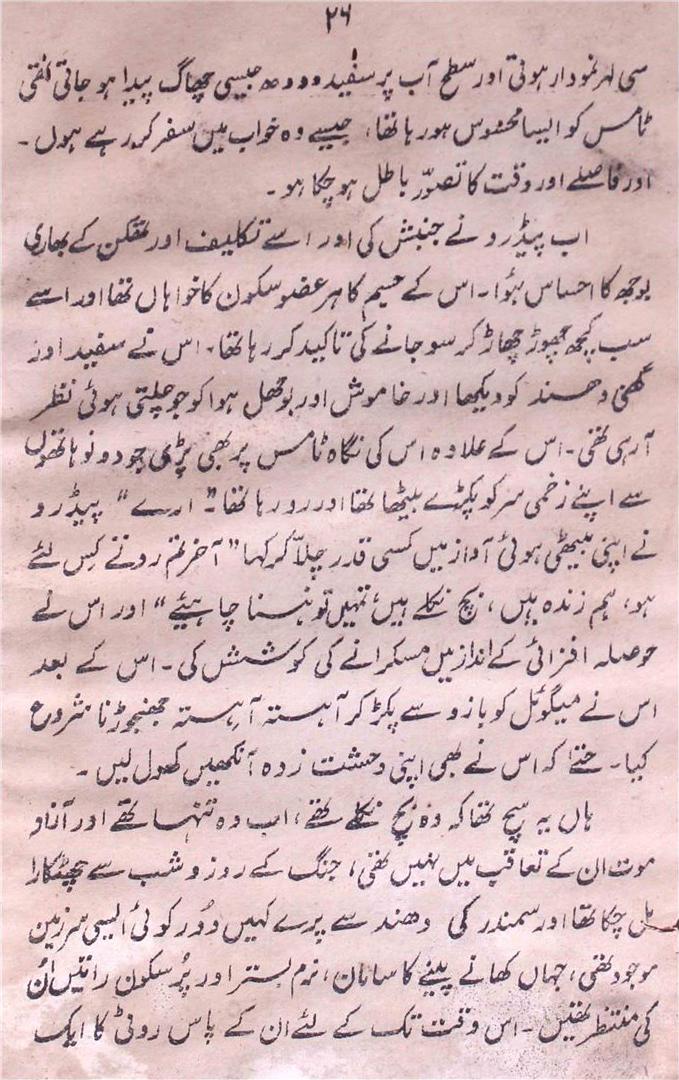 ۲۶
سی لہر نمودار ہوتی اور سطح آب پر سفید دودھ جیسی جھاگ پیدا ہو جاتی تھی
ٹامس کو ایسا محسوس ہو رہا تھا، جیسے وہ خواب میں سفر کر رہے ہوں ۔
اور فاصلے اور وقت کا تصوّر باطل ہو چکا ہو ۔
اب پیڈرو نے جنبش کی اور اسے تکلیف اور تھکن کے بھاری
بوجھ کا احساس ہوٴا ۔ اس کے جسم کا ہر عضو سکون کا خواہاں تھا اور اسے
سب کچھ چھوڑ چھاڑ کر سو جانے کی تاکید کر رہا تھا ۔ اس نے سفید اور
گھنی دھند کو دیکھا اور خاموش اور بوجھل ہوا کو جو چلتی ہوئی نظر
آرہی تھی ۔ اس کے علاوہ اس کی نگاہ ٹامس پر بھی پڑی جو دونو ہاتھوں
سے اپنے زخمی سر کو پکڑے بیٹھا تھا اور رو رہا تھا ۔ " ارے " پیڈرو
نے اپنی بیٹھی ہوئی آواز میں کسی قدر چلّا کر کہا " آخر تم روتے کس لئے
ہو، ہم زندہ ہیں ، بچ نکلے ہیں، تمہیں تو ہنسنا چاہیئے " اور اس نے
حوصلہ افزائی کے انداز میں مسکرانے کی کوشش کی ۔ اس کے بعد
اس نے میگوئل کو بازو سے پکڑ کر آہستہ آہستہ جھنجوڑنا شروع
کیا ۔ حتےٰ کہ اس نے بھی اپنی وحشت زدہ آنکھیں کھول لیں ۔
ہاں یہ سچ تھا کہ وہ بچ نکلے تھے ، اب وہ تنہا تھے اور آزاد
موت ان کے تعاقب میں نہیں تھی ، جنگ کے روز و شب سے چھٹکارا
مل چکا تھا اور سمندر کی دھند سے پرے کہیں دُور کوئی ایسی سرزمین
موجود تھی ، جہاں کھانے پینے کا سامان ، نرم بستر اور پُر سکون راتیں اُن
کی منتظر تھیں ۔ اس وقت تک کے لئے ان کے پاس روٹی کا ایک